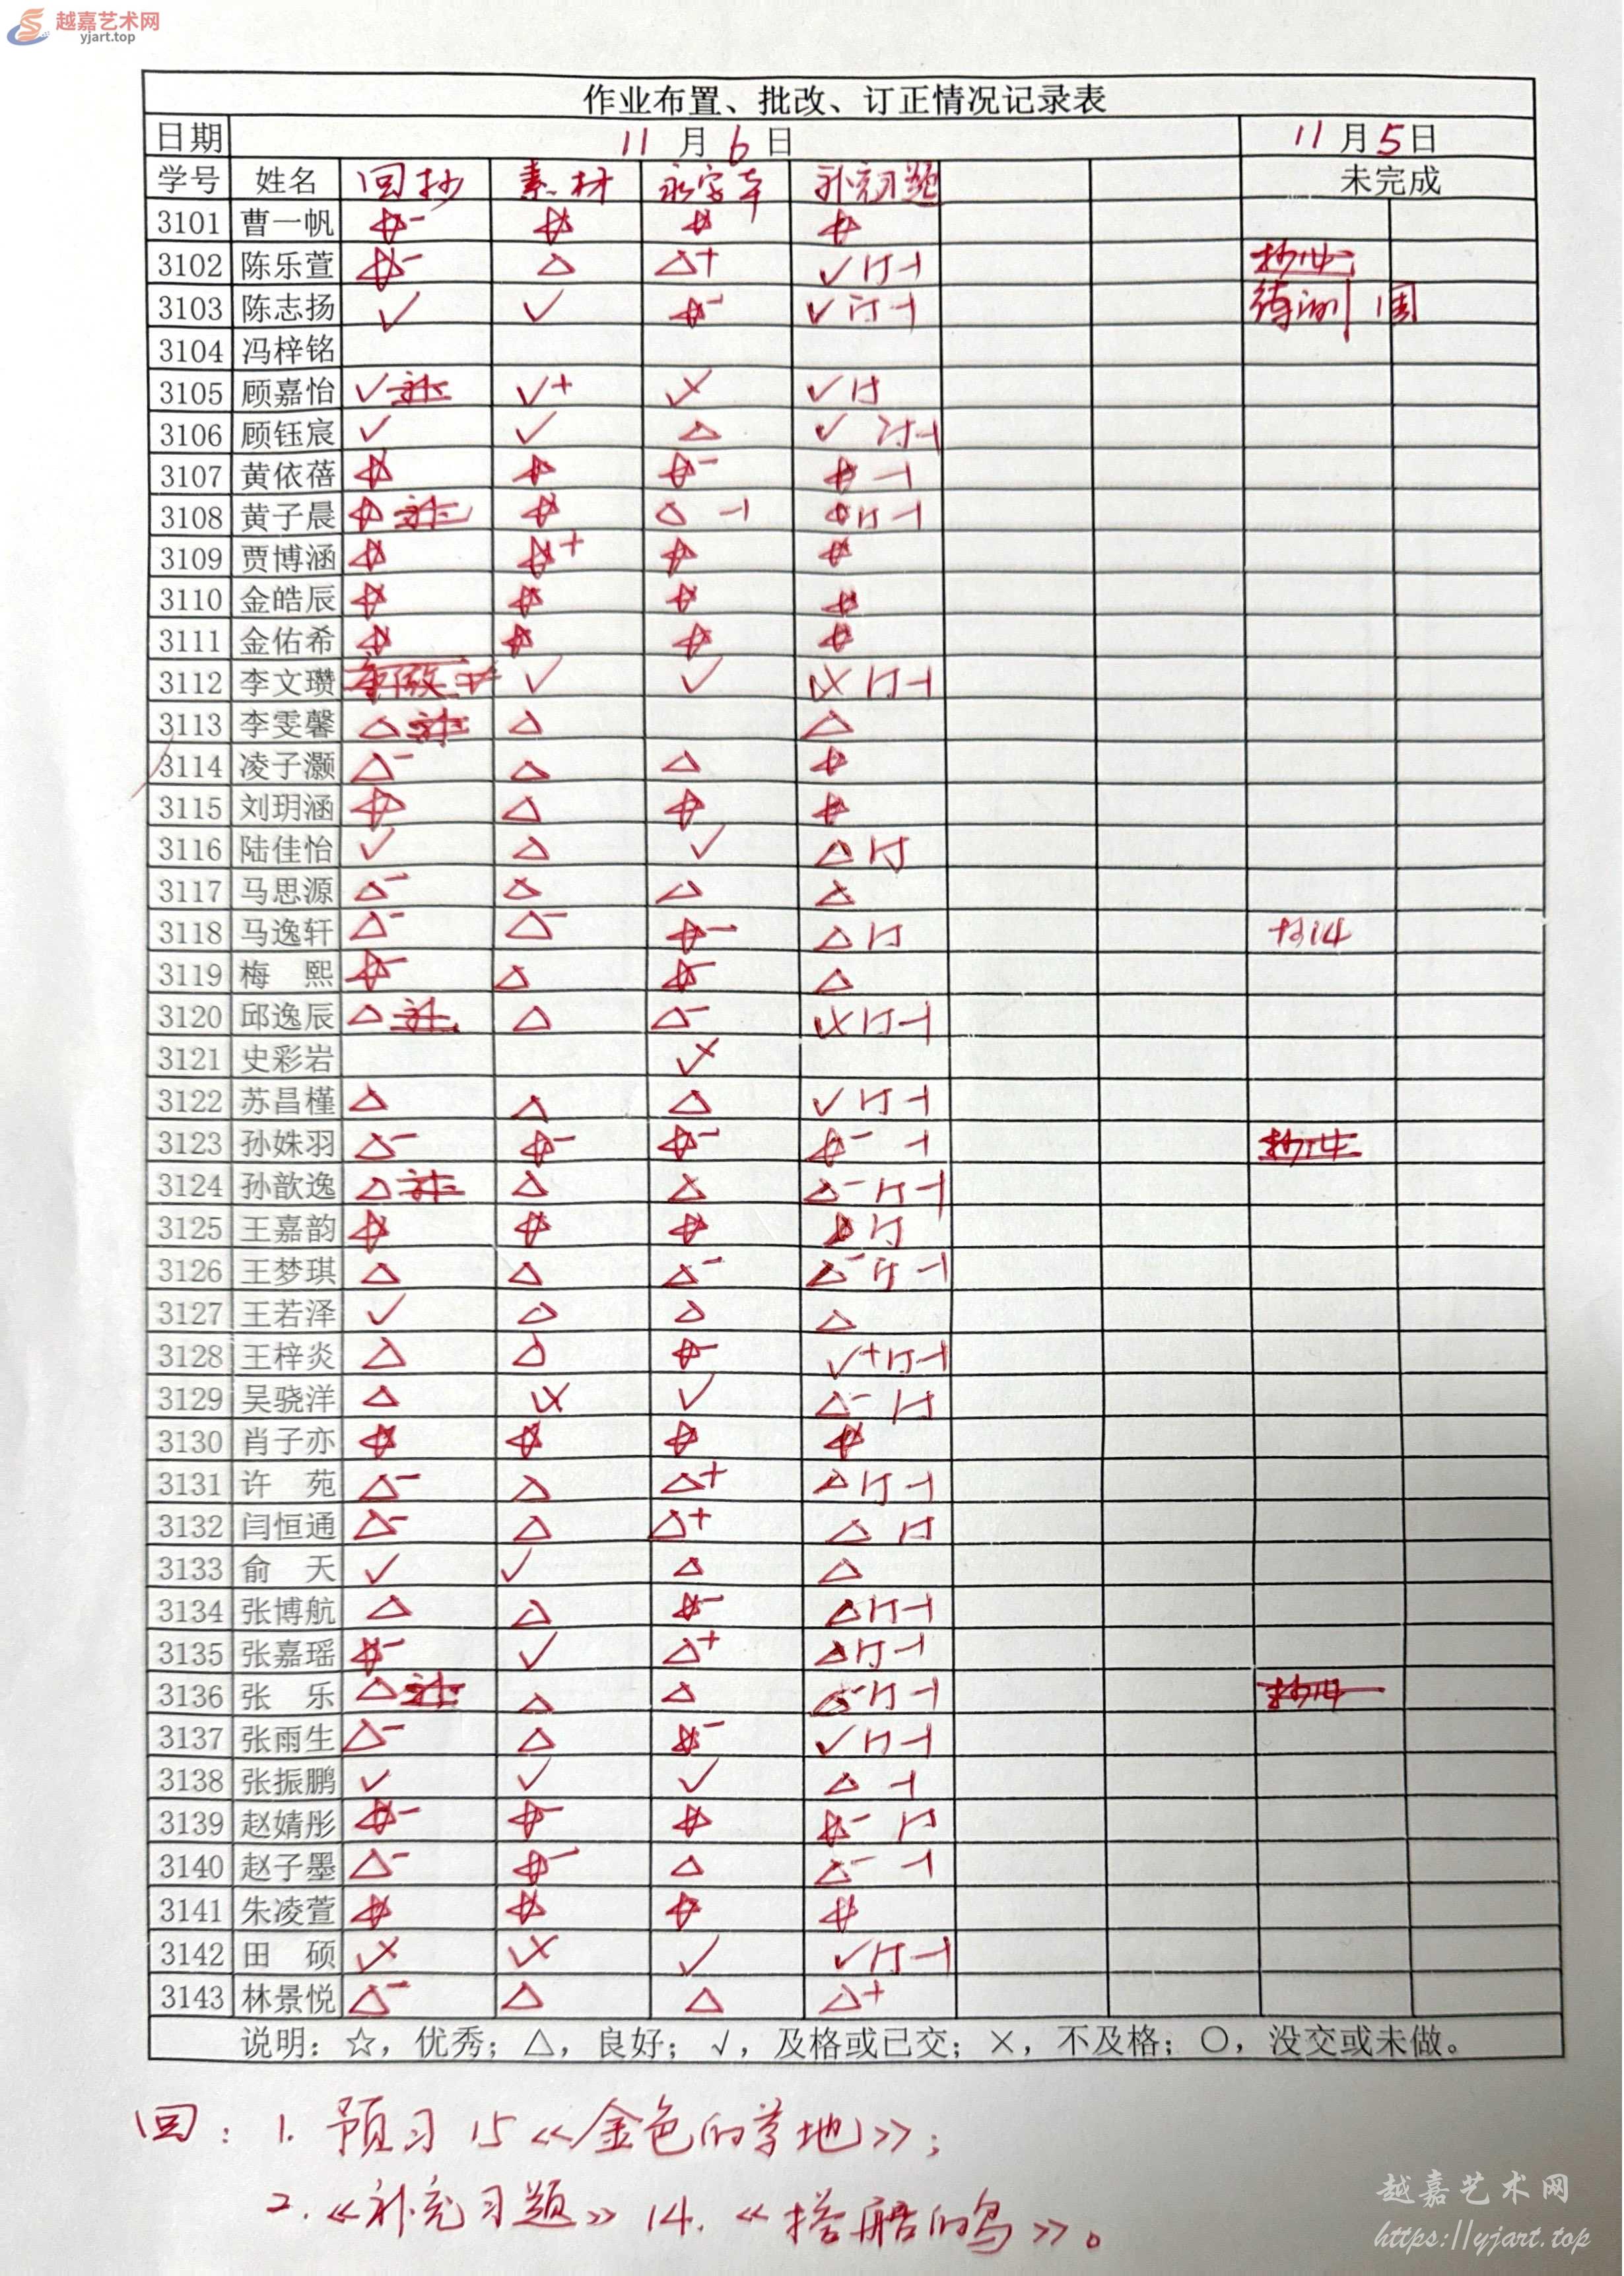 越嘉艺术网
yjart.top
作业布置、批改、订正情况记录表
日期 11月6日 11月5日
学号 姓名 回抄 素材 补充习题 未完成
3101 曹一帆 ☆- ☆ ☆ ☆
3102 陈乐萱 ☆- △ △+ √订-1
3103 陈志扬 √ √ ☆- √订-1
3104 冯梓铭
3105 顾嘉怡 √ √+ √订
3106 顾钰宸 √ √ △ √ 订-1
3107 黄依蓓 ☆ ☆ ☆- ☆ -1
3108 黄子晨 ☆ ☆ △ -1 ☆订-1
3109 贾博涵 ☆ ☆+ ☆ ☆
3110 金皓辰 ☆ ☆ ☆ ☆
3111 金佑希 ☆ ☆ ☆ ☆
3112 李文瓒 √ √ 订-1
3113 李雯馨 △ △ △
3114 凌子灏 △- △ △ ☆
3115 刘玥涵 ☆ △ ☆ ☆
3116 陆佳怡 √ △ √ △订
3117 马思源 △- △ △ △
3118 马逸轩 △- △- ☆- △订 抄14
3119 梅 熙 ☆- △ ☆- △
3120 邱逸辰 △ △ △- 订-1
3121 史彩岩
3122 苏昌槿 △ △ △ √订-1
3123 孙姝羽 △- ☆- ☆- ☆- -1
3124 孙歆逸 △ △ △ △-订-1
3125 王嘉韵 ☆ ☆ ☆ 订
3126 王梦琪 △ △ △- △-订-1
3127 王若泽 √ △ △ △
3128 王梓炎 △ △ ☆- √+订-1
3129 吴骁洋 △ √ △- 订
3130 肖子亦 ☆ ☆ ☆ ☆
3131 许 苑 △- △ △+ △订-1
3132 闫恒通 △- △ △+ △ 订
3133 俞 天 √ √ △ △
3134 张博航 △ △ ☆- △订-1
3135 张嘉瑶 ☆- √ △+ △订-1
3136 张 乐 △ △ △ △-订-1
3137 张雨生 △- △ ☆- √订-1
3138 张振鹏 √ √ √ △ -1
3139 赵婧彤 ☆- ☆- ☆ ☆- 订
3140 赵子墨 △- ☆- △ △- -1
3141 朱凌萱 ☆ ☆ ☆ ☆
3142 田 硕 √ √订-1
3143 林景悦 △- △ △ △+
说明：☆，优秀；△，良好；√，及格或已交；×，不及格；○，没交或未做。
回：1.预习15《金色的草地》；
2.《补充习题》14.《搭船的鸟》。
越嘉艺术网
https://yjart.top